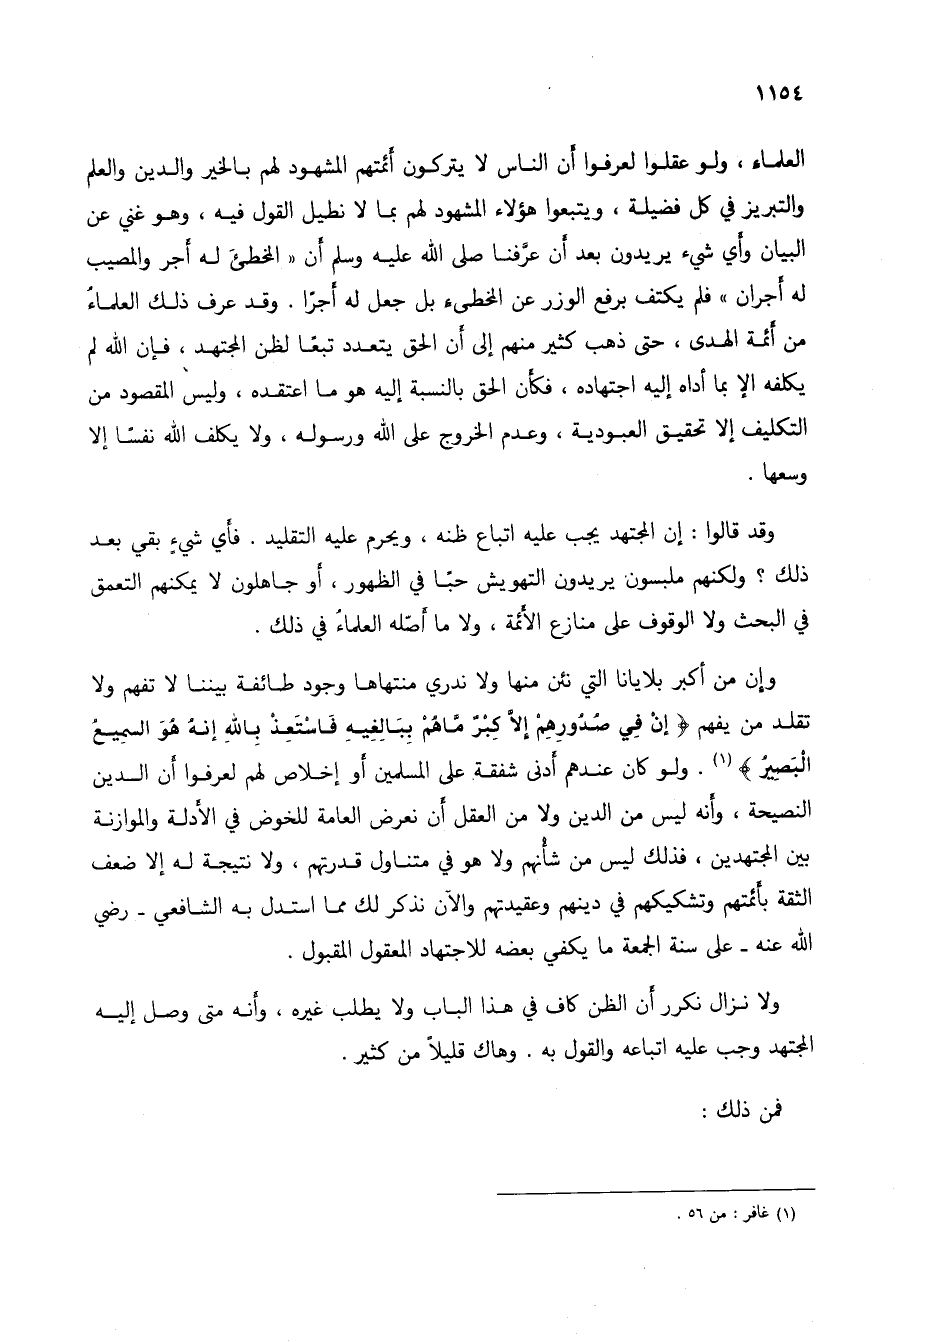 ١١٥٤
العلماء ، ولو عقلوا لعرفوا أن الناس لا يتركون أئمتهم المشهود لهم بالخير والدين والعلم
والتبريز في كل فضيلة ، ويتبعوا هؤلاء المشهود لهم بما لا نطيل القول فيه ، وهو غني عن
البيان وأي شيء يريدون بعد أن عرَّفنا صلى الله عليه وسلم أن « المخطئ له أجر والمصيب
له أجران » فلم يكتف برفع الوزر عن المخطىء بل جعل له أجرًا . وقد عرف ذلك العلماءُ
من أئمة الهدى ، حتى ذهب كثير منهم إلى أن الحق يتعدد تبعًا لظن المجتهد ، فإن الله لم
يكلفه الإ بما أداه إليه اجتهاده ، فكأن الحق بالنسبة إليه هو ما اعتقده ، وليس المقصود من
التكليف إلا تحقيق العبودية ، وعدم الخروج على الله ورسوله ، ولا يكلف الله نفسًا إلا
وسعها .
وقد قالوا : إن المجتهد يجب عليه اتباع ظنه ، ويحرم عليه التقليد . فأي شيءٍ بقي بعد
ذلك ؟ ولكنهم ملبسون يريدون التهويش حبًا في الظهور ، أو جاهلون لا يمكنهم التعمق
في البحث ولا الوقوف على منازع الأئمة ، ولا ما أصّله العلماءُ في ذلك .
وإن من أكبر بلايانا التي نئن منها ولا ندري منتهاها وجود طائفة بيننا لا تفهم ولا
تقلد من يفهم ﴿ إنْ فِي صُدُورِهِمْ إلاَّ كِبْرٌ مَّاهُمْ بِبَالِغِيهِ فَاسْتَعِذْ بِاللهِ إنهُ هُوَ السمِيعُ
الْبَصِيرُ ﴾ (١) . ولو كان عندهم أدنى شفقة على المسلمين أو إخلاص لهم لعرفوا أن الدين
النصيحة ، وأنه ليس من الدين ولا من العقل أن نعرض العامة للخوض في الأدلة والموازنة
بين المجتهدين ، فذلك ليس من شأنهم ولا هو في متناول قدرتهم ، ولا نتيجة له إلا ضعف
الثقة بأئمتهم وتشكيكهم في دينهم وعقيدتهم والآن نذكر لك مما استدل به الشافعي ـ رضي
الله عنه ـ على سنة الجمعة ما يكفي بعضه للاجتهاد المعقول المقبول .
ولا نزال نكرر أن الظن كاف في هذا الباب ولا يطلب غيره ، وأنه متى وصل إليه
المجتهد وجب عليه اتباعه والقول به . وهاك قليلاً من كثير .
فمن ذلك :
(١) غافر : من ٥٦ .